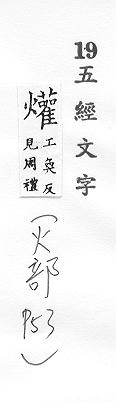 19五經文字
爟
工奐反
見周禮
(火部 P53)